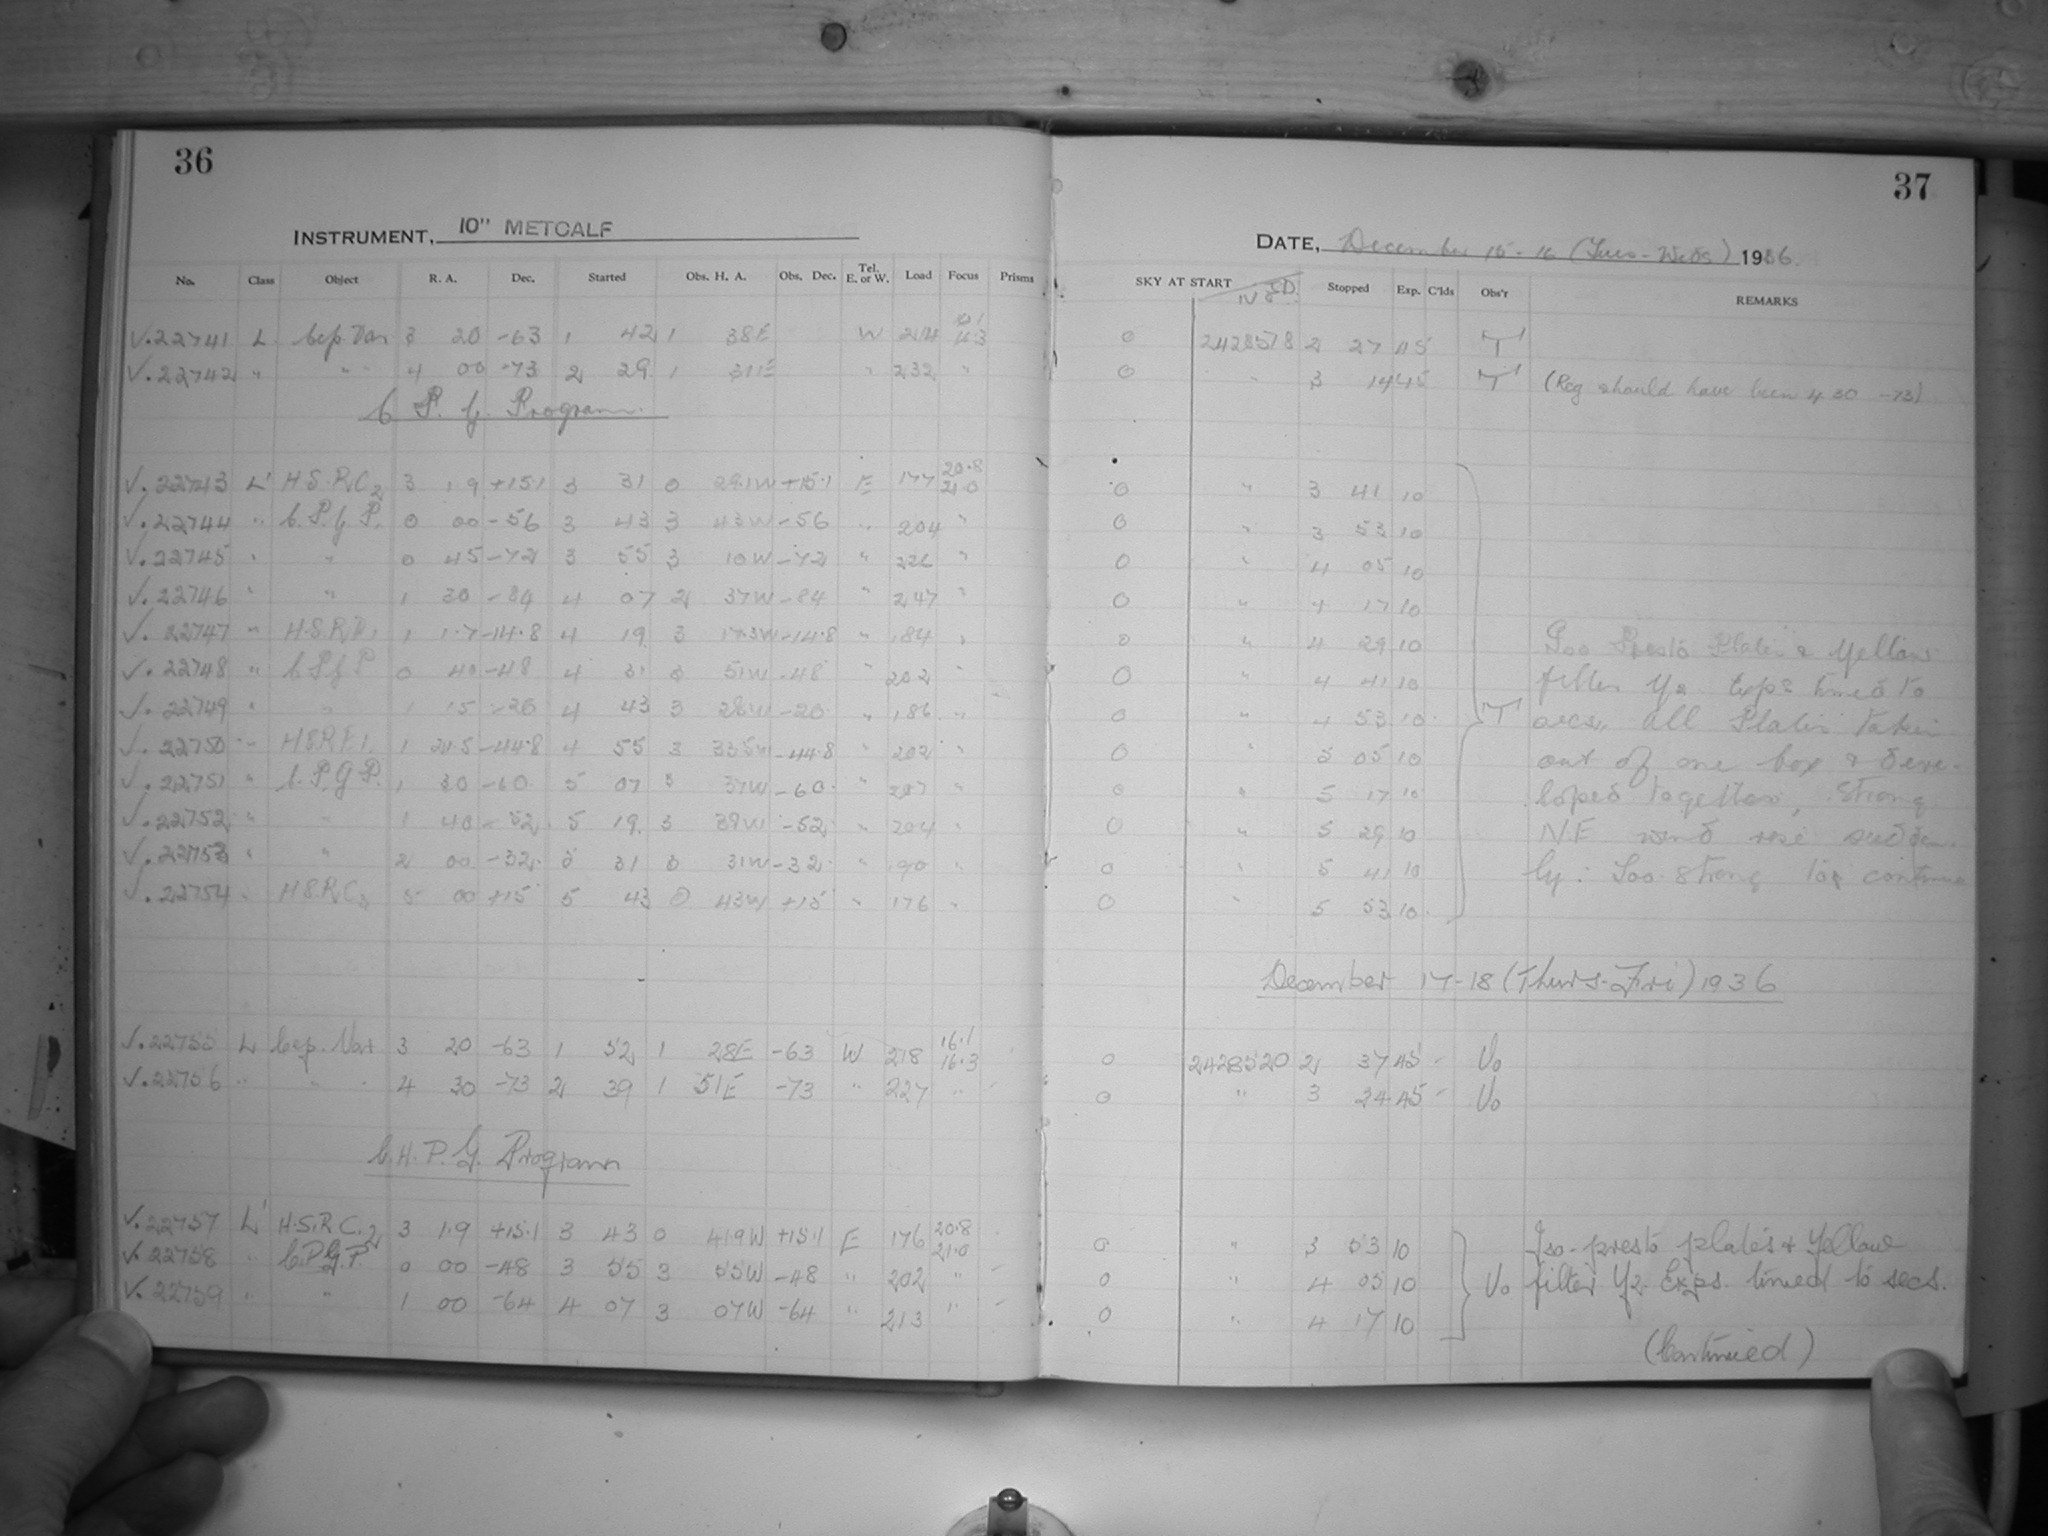 36
37
INSTRUMENT, 10" METCALF
DATE, December 15-16 (Tues-Weds) 1936.
No. Class Object R. A. Dec. Started Obs. H. A. Obs. Dec. Tel. E. or W. Load Focus Prisms SKY AT START J.D. Stopped Exp. C'lds Obs'r REMARKS
22741 L Cep. Var 3 20 -63 1 42 1 38E W 214 16.3 0 2428518 2 27 45 T
22742 " " " 4 00 -73 2 29 1 31E " 232 " 0 " 3 14 45 T (Reg should have been 4 30 -73)
C P. G. Program.
22743 L' H.S.R.C2 3 1.9 +15.1 3 31 0 29.1W +15.1 E 177 20.8 21.0 0 " 3 41 10
22744 " C.P.G.P. 0 00 -56 3 43 3 43W -56 " 204 " 0 " 3 53 10
22745 " " 0 45 -72 3 55 3 10W -72 " 226 " 0 " 4 05 10
22746 " " 1 30 -84 4 07 2 37W -84 " 247 " 0 " 4 17 10
22747 " H.S.R. 1 1.7 -14.8 4 19 3 17.3W -14.8 " 184 " 0 " 4 29 10 Iso Presto Plates & Yellow
22748 " C.P.G.P 0 40 -48 4 31 3 51W -48 " 202 0 " 4 41 10 filter Y2. Exps timed to
22749 " " 1 15 -20 4 43 3 28W -20 " 186 " 0 " 4 53 10 T secs. All Plates taken
22750 " H.S.R. 1 -44.8 4 55 3 -44.8 " 202 " 0 " 5 05 10 out of one box & deve-
22751 " C.P.G.P. 1 30 -60 5 07 3 37W -60 " 207 " 0 " 5 17 10 loped together, Strong
22752 " " 1 40 -52 5 19 3 39W -52 " 204 " 0 " 5 29 10 N.E wind rose sudden-
22753 " " 2 00 -32 5 31 3 31W -32 " 190 " 0 " 5 41 10 ly: Too strong to continue
22754 " H.S.R.C 5 00 +15 5 43 0 43W +15 " 176 " 0 " 5 53 10
December 17-18 (Thurs-Fri) 1936
22755 L Cep. Var 3 20 -63 1 52 1 28E -63 W 218 16.1 16.3 0 2428520 2 37 45 Vo
22756 " " " 4 30 -73 2 39 1 51E -73 " 227 " 0 " 3 24 45 Vo
C.H.P.G. Program
22757 L' H.S.R.C.2 3 1.9 +15.1 3 43 0 41.9W +15.1 E 176 20.8 21.0 0 " 3 53 10 Iso-presto plates & Yellow
22758 " C.P.G.P. 0 00 -48 3 55 3 55W -48 " 202 " 0 " 4 05 10 Vo filter Y2. Exps. timed to secs.
22759 " " 1 00 -64 4 07 3 07W -64 " 213 " 0 " 4 17 10
(Continued)